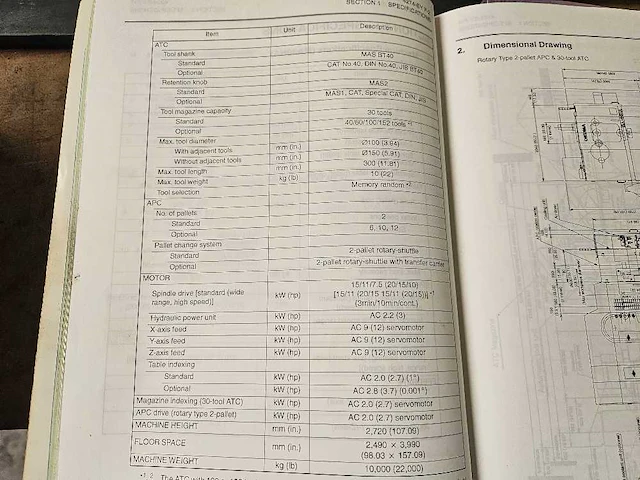 SECTION 1 SPECIFICATIONS
Item Unit Description
ATC
Tool shank MAS BT40
Standard CAT No.40, DIN No.40, JIS BT40
Optional
Retention knob MAS2
Standard MAS1, CAT, Special CAT, DIN, JIS
Optional
Tool magazine capacity 30 tools
Standard 40/60/100/152 tools
Optional
Max. tool diameter
With adjacent tools mm (in.) Ø100 (3.94)
Without adjacent tools mm (in.) Ø150 (5.91)
Max. tool length mm (in.) 300 (11.81)
Max. tool weight kg (lb) 10 (22)
Tool selection Memory random *2
APC
No. of pallets
Standard 2
Optional 6, 10, 12
Pallet change system
Standard 2-pallet rotary-shuttle
Optional 2-pallet rotary-shuttle with transfer carrier
MOTOR
Spindle drive [standard (wide range, high speed)] kW (hp) 15/11/7.5 (20/15/10)
[15/11 (20/15 15/11 (20/15))] *1
(3min/10min/cont.)
Hydraulic power unit kW (hp) AC 2.2 (3)
X-axis feed kW (hp) AC 9 (12) servomotor
Y-axis feed kW (hp) AC 9 (12) servomotor
Z-axis feed kW (hp) AC 9 (12) servomotor
Table indexing
Standard kW (hp) AC 2.0 (2.7) (1°)
Optional kW (hp) AC 2.8 (3.7) (0.001°)
Magazine indexing (30-tool ATC) kW (hp) AC 2.0 (2.7) servomotor
APC drive (rotary type 2-pallet) kW (hp) AC 2.0 (2.7) servomotor
MACHINE HEIGHT mm (in.) 2,720 (107.09)
FLOOR SPACE mm (in.) 2,490 × 3,990
(98.03 × 157.09)
MACHINE WEIGHT kg (lb) 10,000 (22,000)
*1, 2 The ATC with
2. Dimensional Drawing
Rotary Type 2-pallet APC & 30-tool ATC